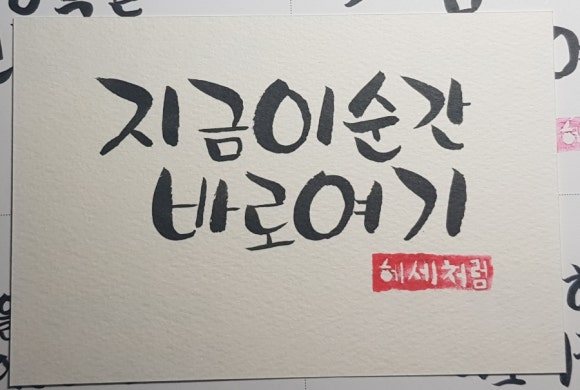 지금이순간
바로여기
혜세처럼